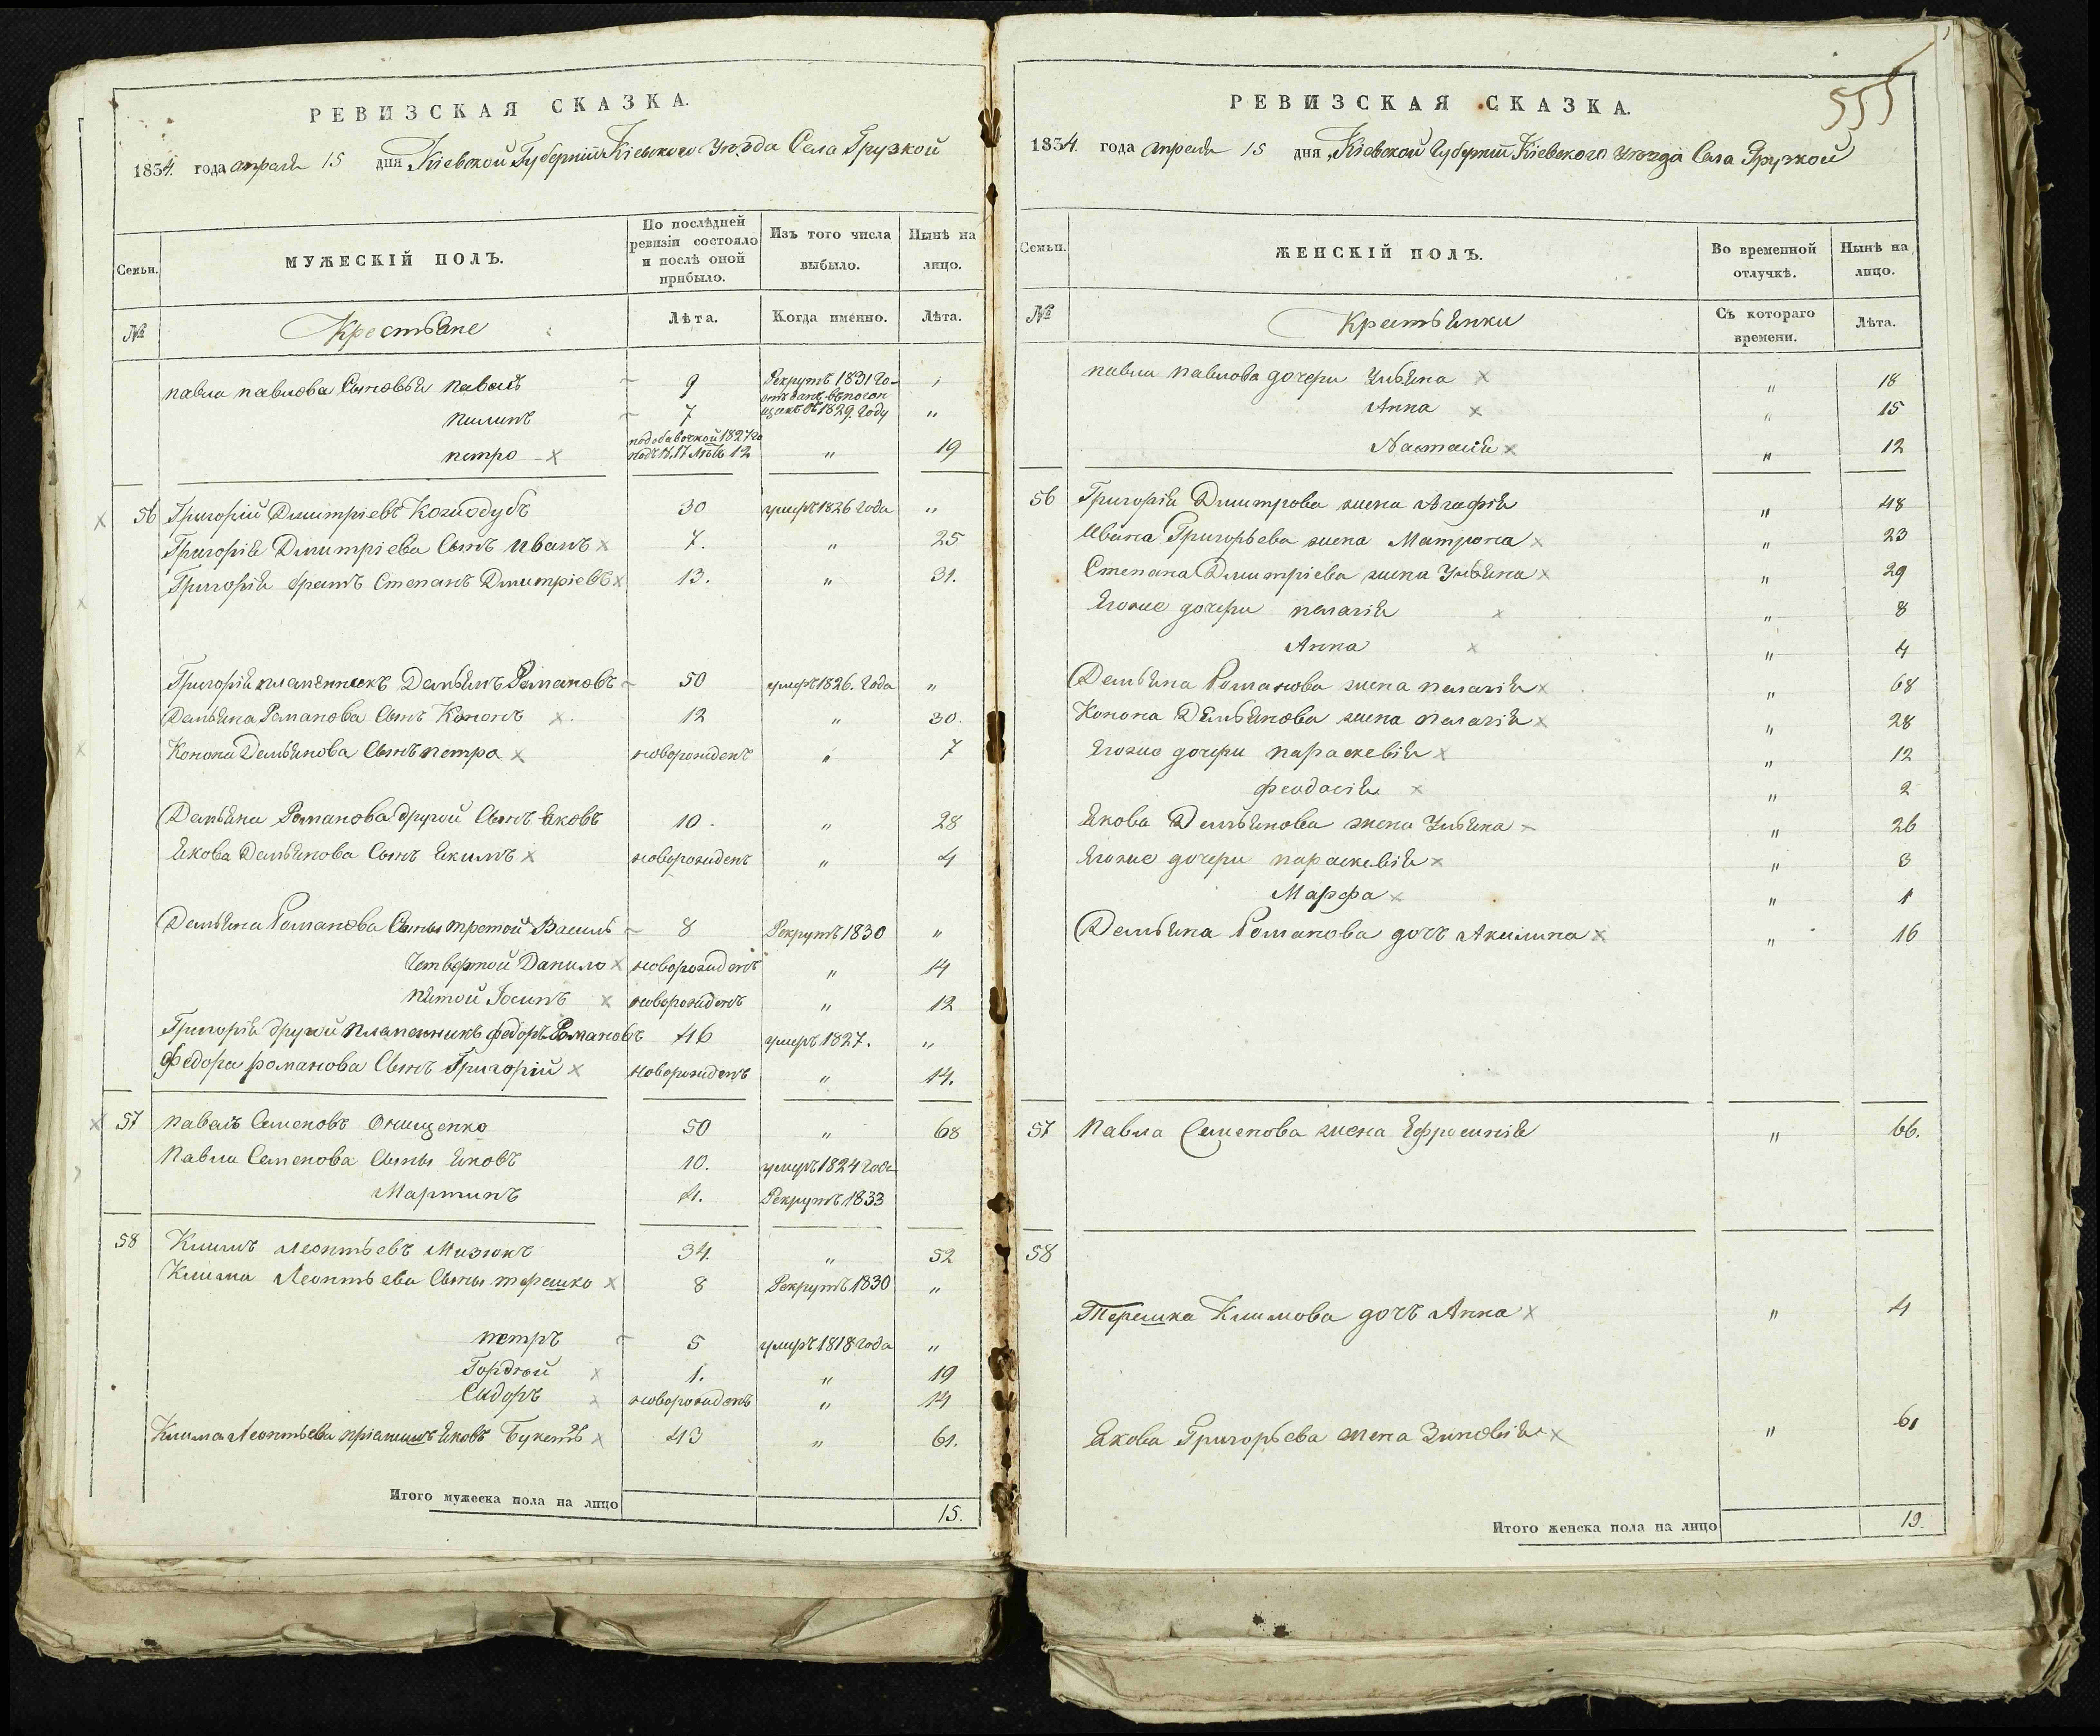 РЕВИЗСКАЯ СКАЗКА.
1834. года апреля 15 дня Кіевской Губерніи Кіевского Уезда Села Грузкой
Семьи. МУЖЕСКІЙ ПОЛЪ. По послѣдней ревизіи состояло и послѣ оной прибыло. Изъ того числа выбыло. Нынѣ на лицо.
№ Крестьяне Лѣта. Когда именно. Лѣта.
павла павлова Сыновья павелъ 9 Рекрутъ 1831 го-
пилипъ 7 1829. Году "
петро 12 " 19
56 Григорій Дмитріевъ Козиодубъ 30 умеръ 1826 года "
Григорія Дмитріева Сынъ иванъ 7. " 25
Григорія братъ Степанъ Дмитріевъ 13. " 31.
Григорія племянникъ Демьянъ Романовъ 50 умеръ 1826. года "
Демьяна Романова Сынъ Кононъ 12 " 30.
Конона Демьянова Сынъ петро новорожденъ " 7
Демьяна Романова другой Сынъ яковъ 10. " 28
Якова Демьянова Сынъ якимъ новорожденъ " 4
Демьяна Романова Сыны третой Василь 8 Рекрутъ 1830 "
Четвертой Данило новорожденъ " 14
пятой Іосипъ новорожденъ " 12
Григорія другой племенникъ федоръ Романовъ 46 умеръ 1827. "
Федора романова Сынъ Григорій новорожденъ " 14.
57 павелъ Семеновъ Онищенко 50 " 68
Павла Семенова Сыны яковъ 10. умеръ 1824 года
Мартинъ 4. Рекрутъ 1833
58 Климъ Леонтьевъ Мизюкъ 34. " 52
Клима Леонтьева Сыны терешко 8 Рекрутъ 1830 "
петръ 5 умеръ 1818 года "
Гордѣй 1. " 19
Сидоръ новорожденъ " 14
Клима Леонтьева пріемышъ яковъ 43 " 61.
Итого мужеска пола на лицо 15.
РЕВИЗСКАЯ СКАЗКА.
555
1834. года апреля 15 дня Кіевской Губерніи Кіевского Уезда Села Грузкой
Семьи. ЖЕНСКІЙ ПОЛЪ. Во временной отлучкѣ. Нынѣ на лицо.
№ Крестьянки Съ котораго времени. Лѣта.
павла павлова дочери Ульяна " 18
Анна " 15
Настасія " 12
56 Григорія Дмитрова жена Агафія " 48
Ивана Григорьева жена Матрона " 23
Степана Дмитріева жена Ульяна " 29
Егоже дочери пелагія " 8
Анна " 4
Демьяна Романова жена пелагія " 68
Конона Демьянова жена пелагія " 28
Егоже дочери параскевія " 12
феодосія " 2
Якова Демьянова жена Ульяна " 26
Егоже дочери параскевія " 3
Марфа " 1
Демьяна Романова дочъ Акилина " 16
57 Павла Семенова жена Ефросинія " 66.
58
Терешка Климова дочъ Анна " 4
Якова Григорьева жена Зиновія " 61
Итого женска пола на лицо 19.